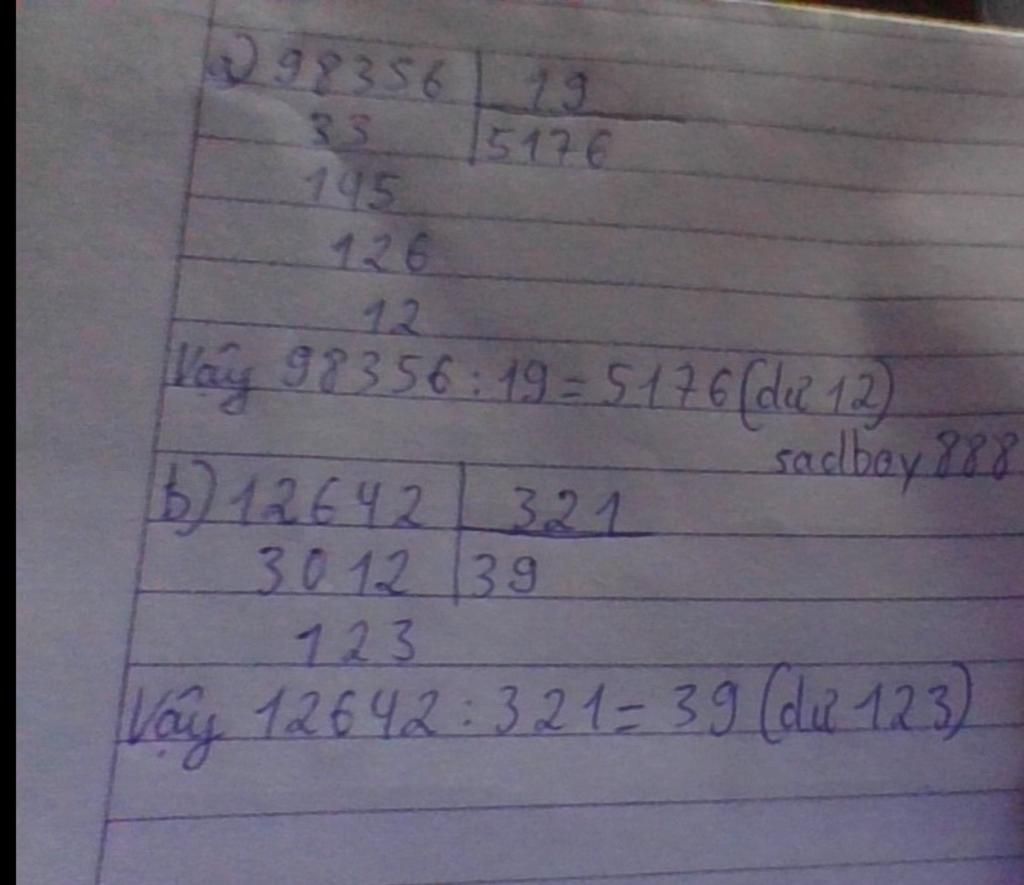 a) 98356 19
33 5176
145
126
12
Vậy 98356 : 19 = 5176 (dư 12)
sadboy 888
b) 12642 321
3012 39
123
Vậy 12642 : 321 = 39 (dư 123)